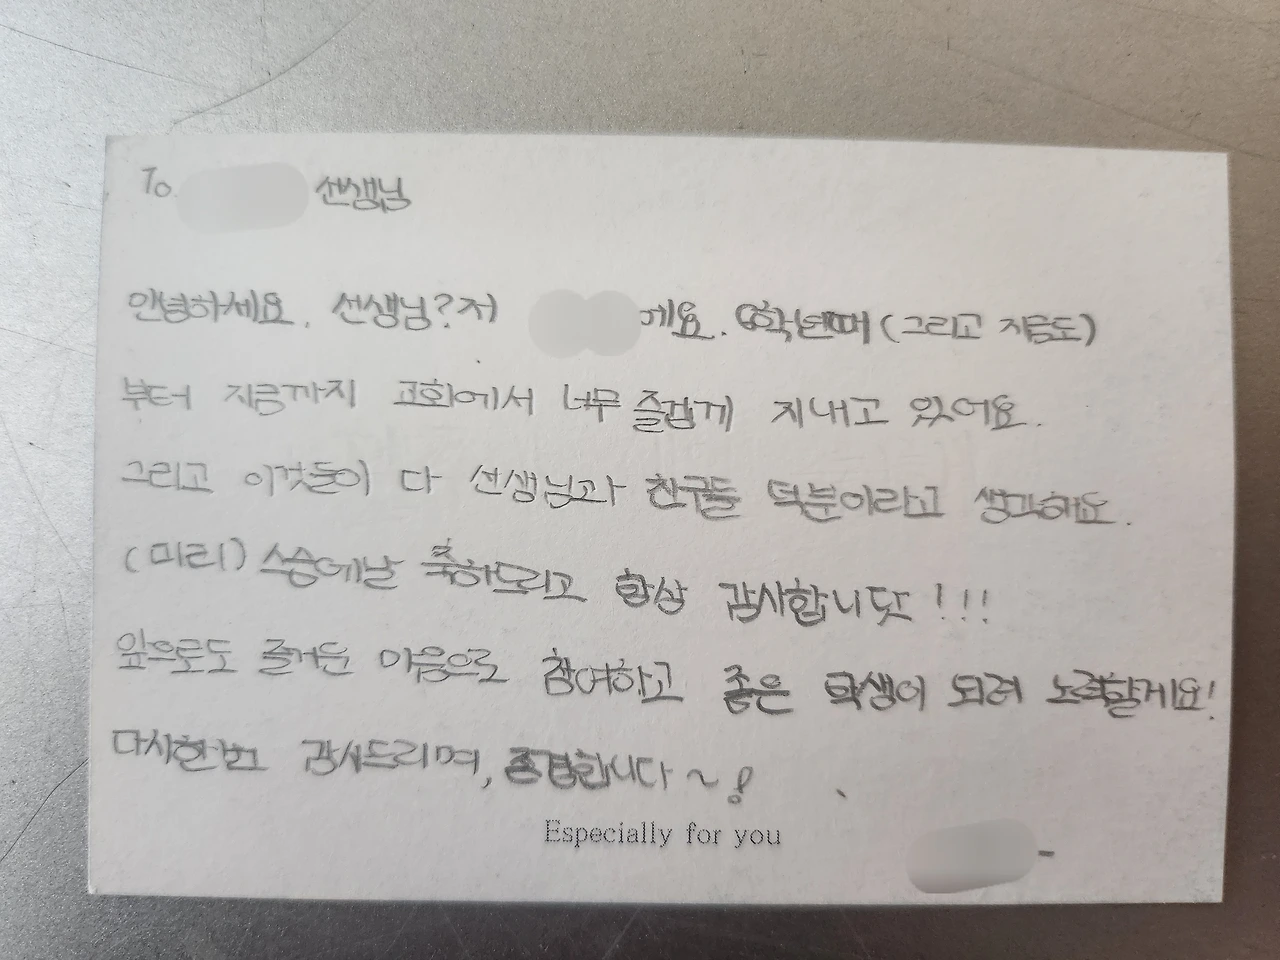 To 선생님
안녕하세요. 선생님? 저 에요. 6학년때 (그리고 지금도)
부터 지금까지 교회에서 너무 즐겁게 지내고 있어요.
그리고 이것들이 다 선생님과 친구들 덕분이라고 생각해요.
(미리) 스승에날 축하드리고 항상 감사합니닷!!!
앞으로도 즐거운 마음으로 참여하고 좋은 학생이 되려 노력할게요!
다시한번 감사드리며, 존경합니다~!
Especially for you